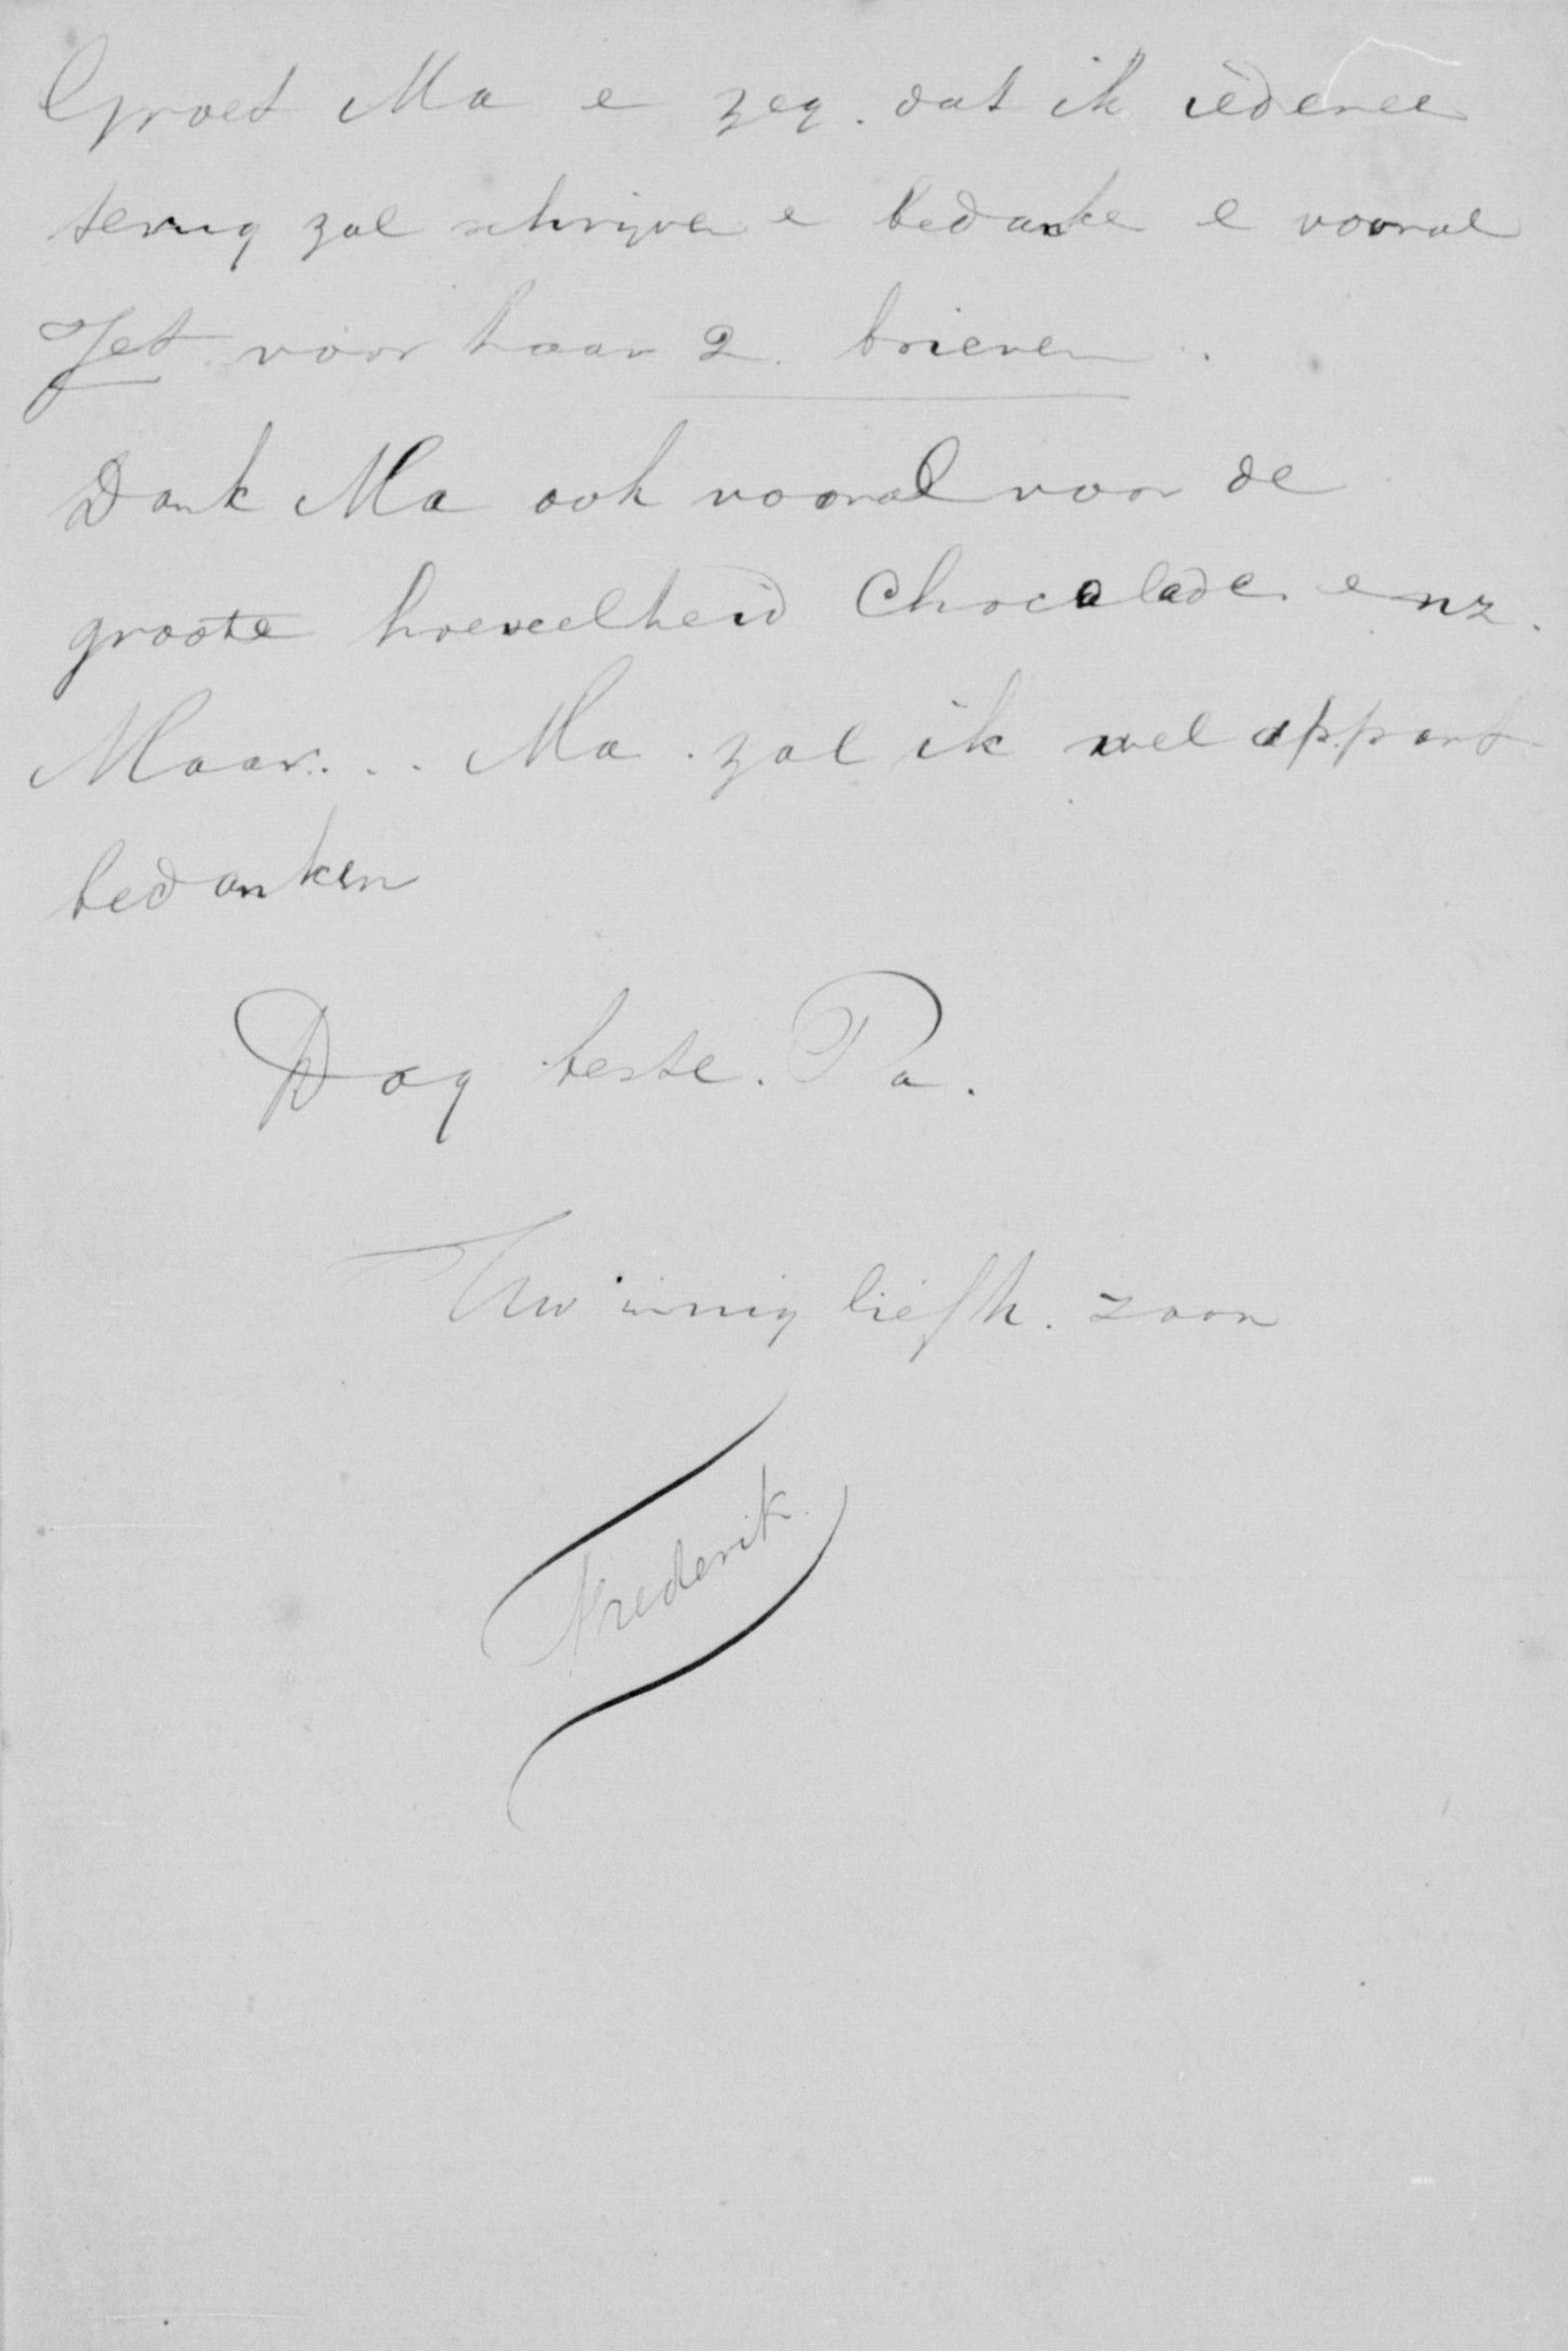 Groet Ma e zeg. dat ik iederee
terug zal schrijve e bedanke e vooral
Jet voor haar 2 brieven.
Dank Ma ook vooral voor de
groote hoeveelheid Chocolade enz.
Maar... Ma. zal ik wel appart
bedanken
Dag beste. Pa.
Uw innig liefh. zoon
Frederik.